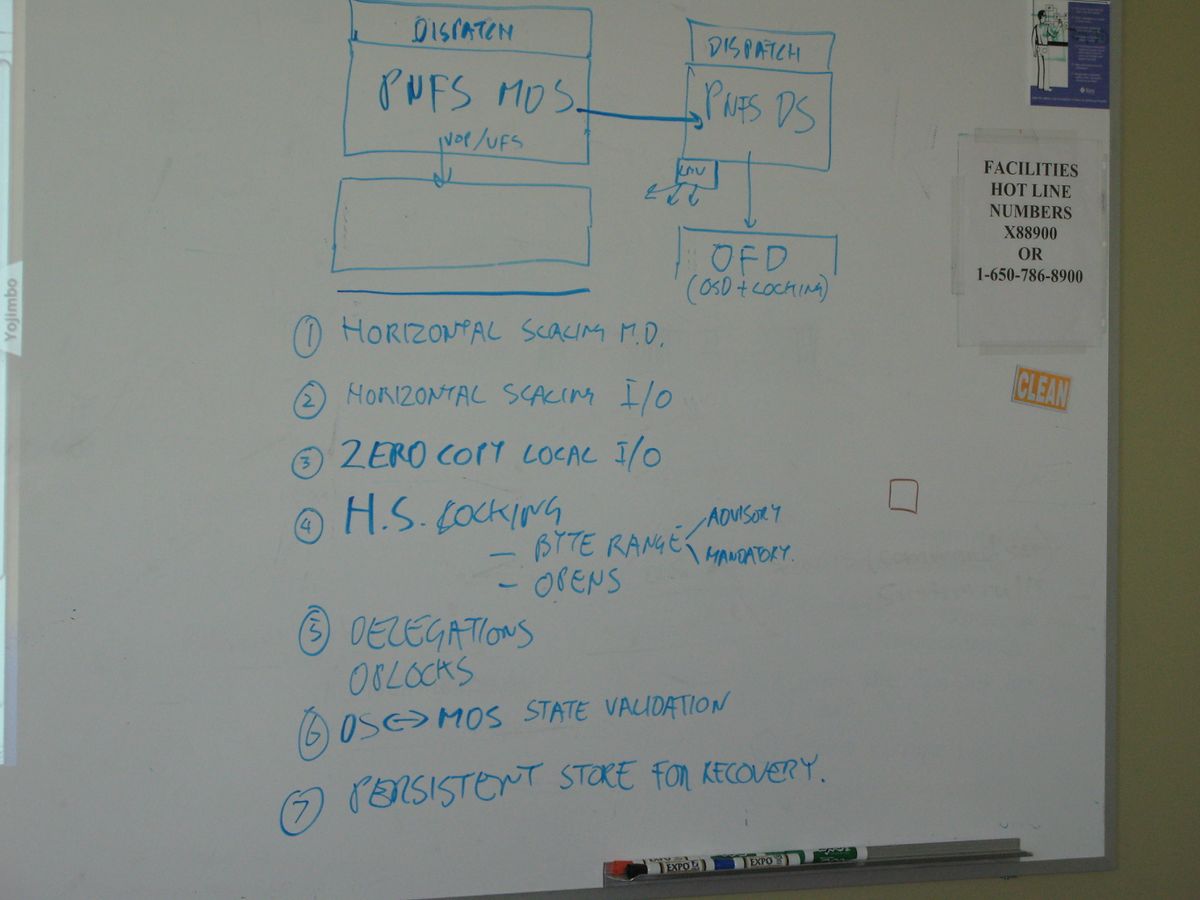 DISPATCH
PNFS MDS
VOP/VFS
DISPATCH
PNFS DS
OFD
(OSD + LOCKING)
① HORIZONTAL SCALING M.D.
② HORIZONTAL SCALING I/O
③ ZERO COPY LOCAL I/O
④ H.S. LOCKING
– BYTE RANGE
ADVISORY
MANDATORY.
– OPENS
⑤ DELEGATIONS
OPLOCKS
⑥ DS <-> MDS STATE VALIDATION
⑦ PERSISTENT STORE FOR RECOVERY.
FACILITIES
HOT LINE
NUMBERS
X88900
OR
1-650-786-8900
CLEAN
Yojimbo
EXPO
EXPO